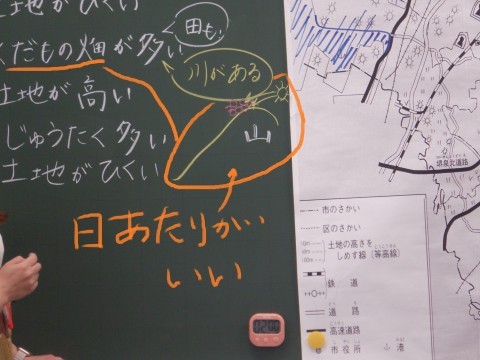 土地がひくい
くだもの畑が多い
田も
川がある
土地が高い
山
じゅうたく多い
土地がひくい
日あたりがいい
いい
市のさかい
区のさかい
土地の高さを
しめす線(等高線)
鉄道
道路
高速道路
市役所
堺泉北道路